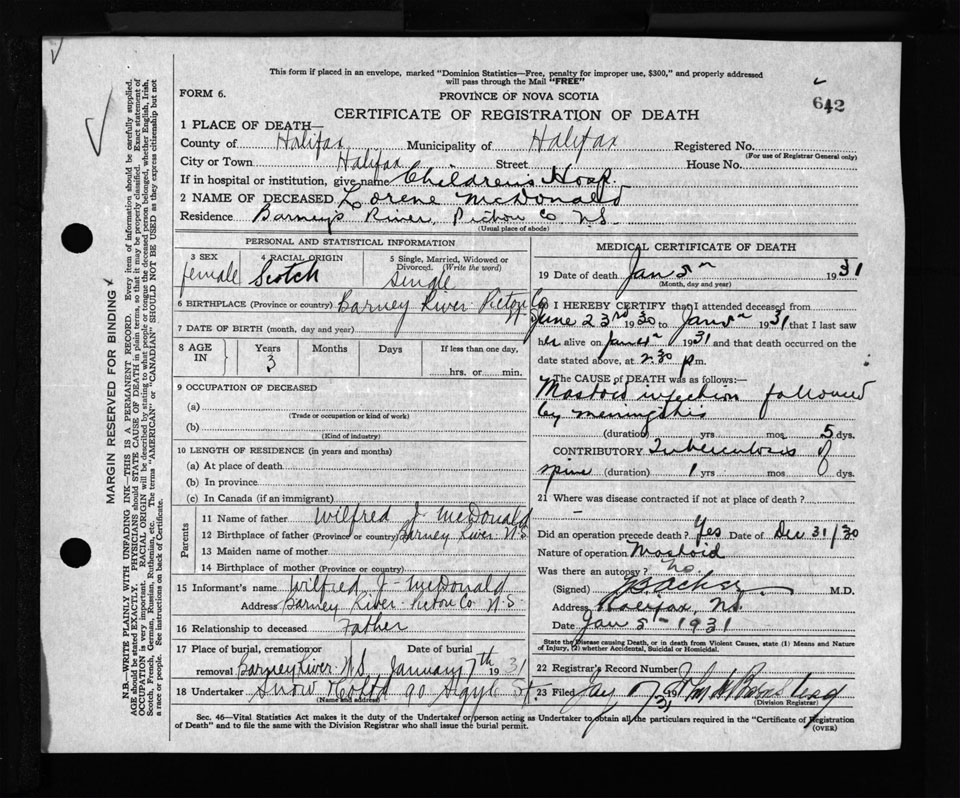 This form if placed in an envelope, marked "Dominion Statistics—Free, penalty for improper use, $300," and properly addressed
will pass through the Mail "FREE"
FORM 6.
PROVINCE OF NOVA SCOTIA
642
CERTIFICATE OF REGISTRATION OF DEATH
1 PLACE OF DEATH—
County of Halifax Municipality of Halifax Registered No.
(For use of Registrar General only)
City or Town Halifax Street House No.
If in hospital or institution, give name Childrens Hosp.
2 NAME OF DECEASED Lorene McDonald
Residence Barneys River, Pictou Co N.S.
(Usual place of abode)
PERSONAL AND STATISTICAL INFORMATION
3 SEX 4 RACIAL ORIGIN 5 Single, Married, Widowed or
Divorced. (Write the word)
female Scotch single
6 BIRTHPLACE (Province or country) Barney River Pictou Co N.S
7 DATE OF BIRTH (month, day and year)
8 AGE IN Years Months Days If less than one day,
3 hrs. or min.
9 OCCUPATION OF DECEASED
(a)
(Trade or occupation or kind of work)
(b)
(Kind of industry)
10 LENGTH OF RESIDENCE (in years and months)
(a) At place of death
(b) In province
(c) In Canada (if an immigrant)
Parents
11 Name of father Wilfred J McDonald
12 Birthplace of father (Province or country) Barney River N.S
13 Maiden name of mother
14 Birthplace of mother (Province or country)
15 Informant's name Wilfred J- McDonald
Address Barney River Pictou Co N-S
16 Relationship to deceased Father
17 Place of burial, cremation or Date of burial
removal Barney River N.S. January 7th 1931
18 Undertaker Snow & Co Ltd 90 Argyle St.
(Name and address)
MEDICAL CERTIFICATE OF DEATH
19 Date of death Jan 5th 1931
(Month, day and year)
20 I HEREBY CERTIFY that I attended deceased from
June 23rd 1930 to Jan 5th 1931 that I last saw
her alive on Jan 1931 and that death occurred on the
date stated above, at 2.30 p m.
The CAUSE OF DEATH was as follows:—
Mastoid infection followed
by meningitis
(duration) yrs mos 5 dys.
CONTRIBUTORY Tuberculosis of
spine (duration) 1 yrs mos dys.
21 Where was disease contracted if not at place of death?
Did an operation precede death? Yes Date of Dec 31/30
Nature of operation Mastoid
Was there an autopsy? No.
(Signed) M.D.
Address Halifax, N.S.
Date Jan 5th 1931
State the Disease causing Death, or in death from Violent Causes, state (1) Means and Nature
of Injury, (2) whether Accidental, Suicidal or Homicidal.
22 Registrar's Record Number
23 Filed Jay 7 1931
(Division Registrar)
Sec. 46—Vital Statistics Act makes it the duty of the Undertaker or person acting as Undertaker to obtain all the particulars required in the "Certificate of Registration
of Death" and to file the same with the Division Registrar who shall issue the burial permit.
(OVER)
MARGIN RESERVED FOR BINDING
N.B.—WRITE PLAINLY WITH UNFADING INK—THIS IS A PERMANENT RECORD. Every item of information should be carefully supplied.
AGE should be stated EXACTLY. PHYSICIANS should STATE CAUSE OF DEATH in plain terms, so that it may be properly classified. Exact statement of
OCCUPATION is very important. RACIAL ORIGIN will be described by stating to what people or tongue the deceased person belonged, whether English, Irish,
Scotch, French, German, Russian, Ruthenian, etc. The terms "AMERICAN" or "CANADIAN" SHOULD NOT BE USED as they express citizenship but not
a race or people. See instructions on back of Certificate.